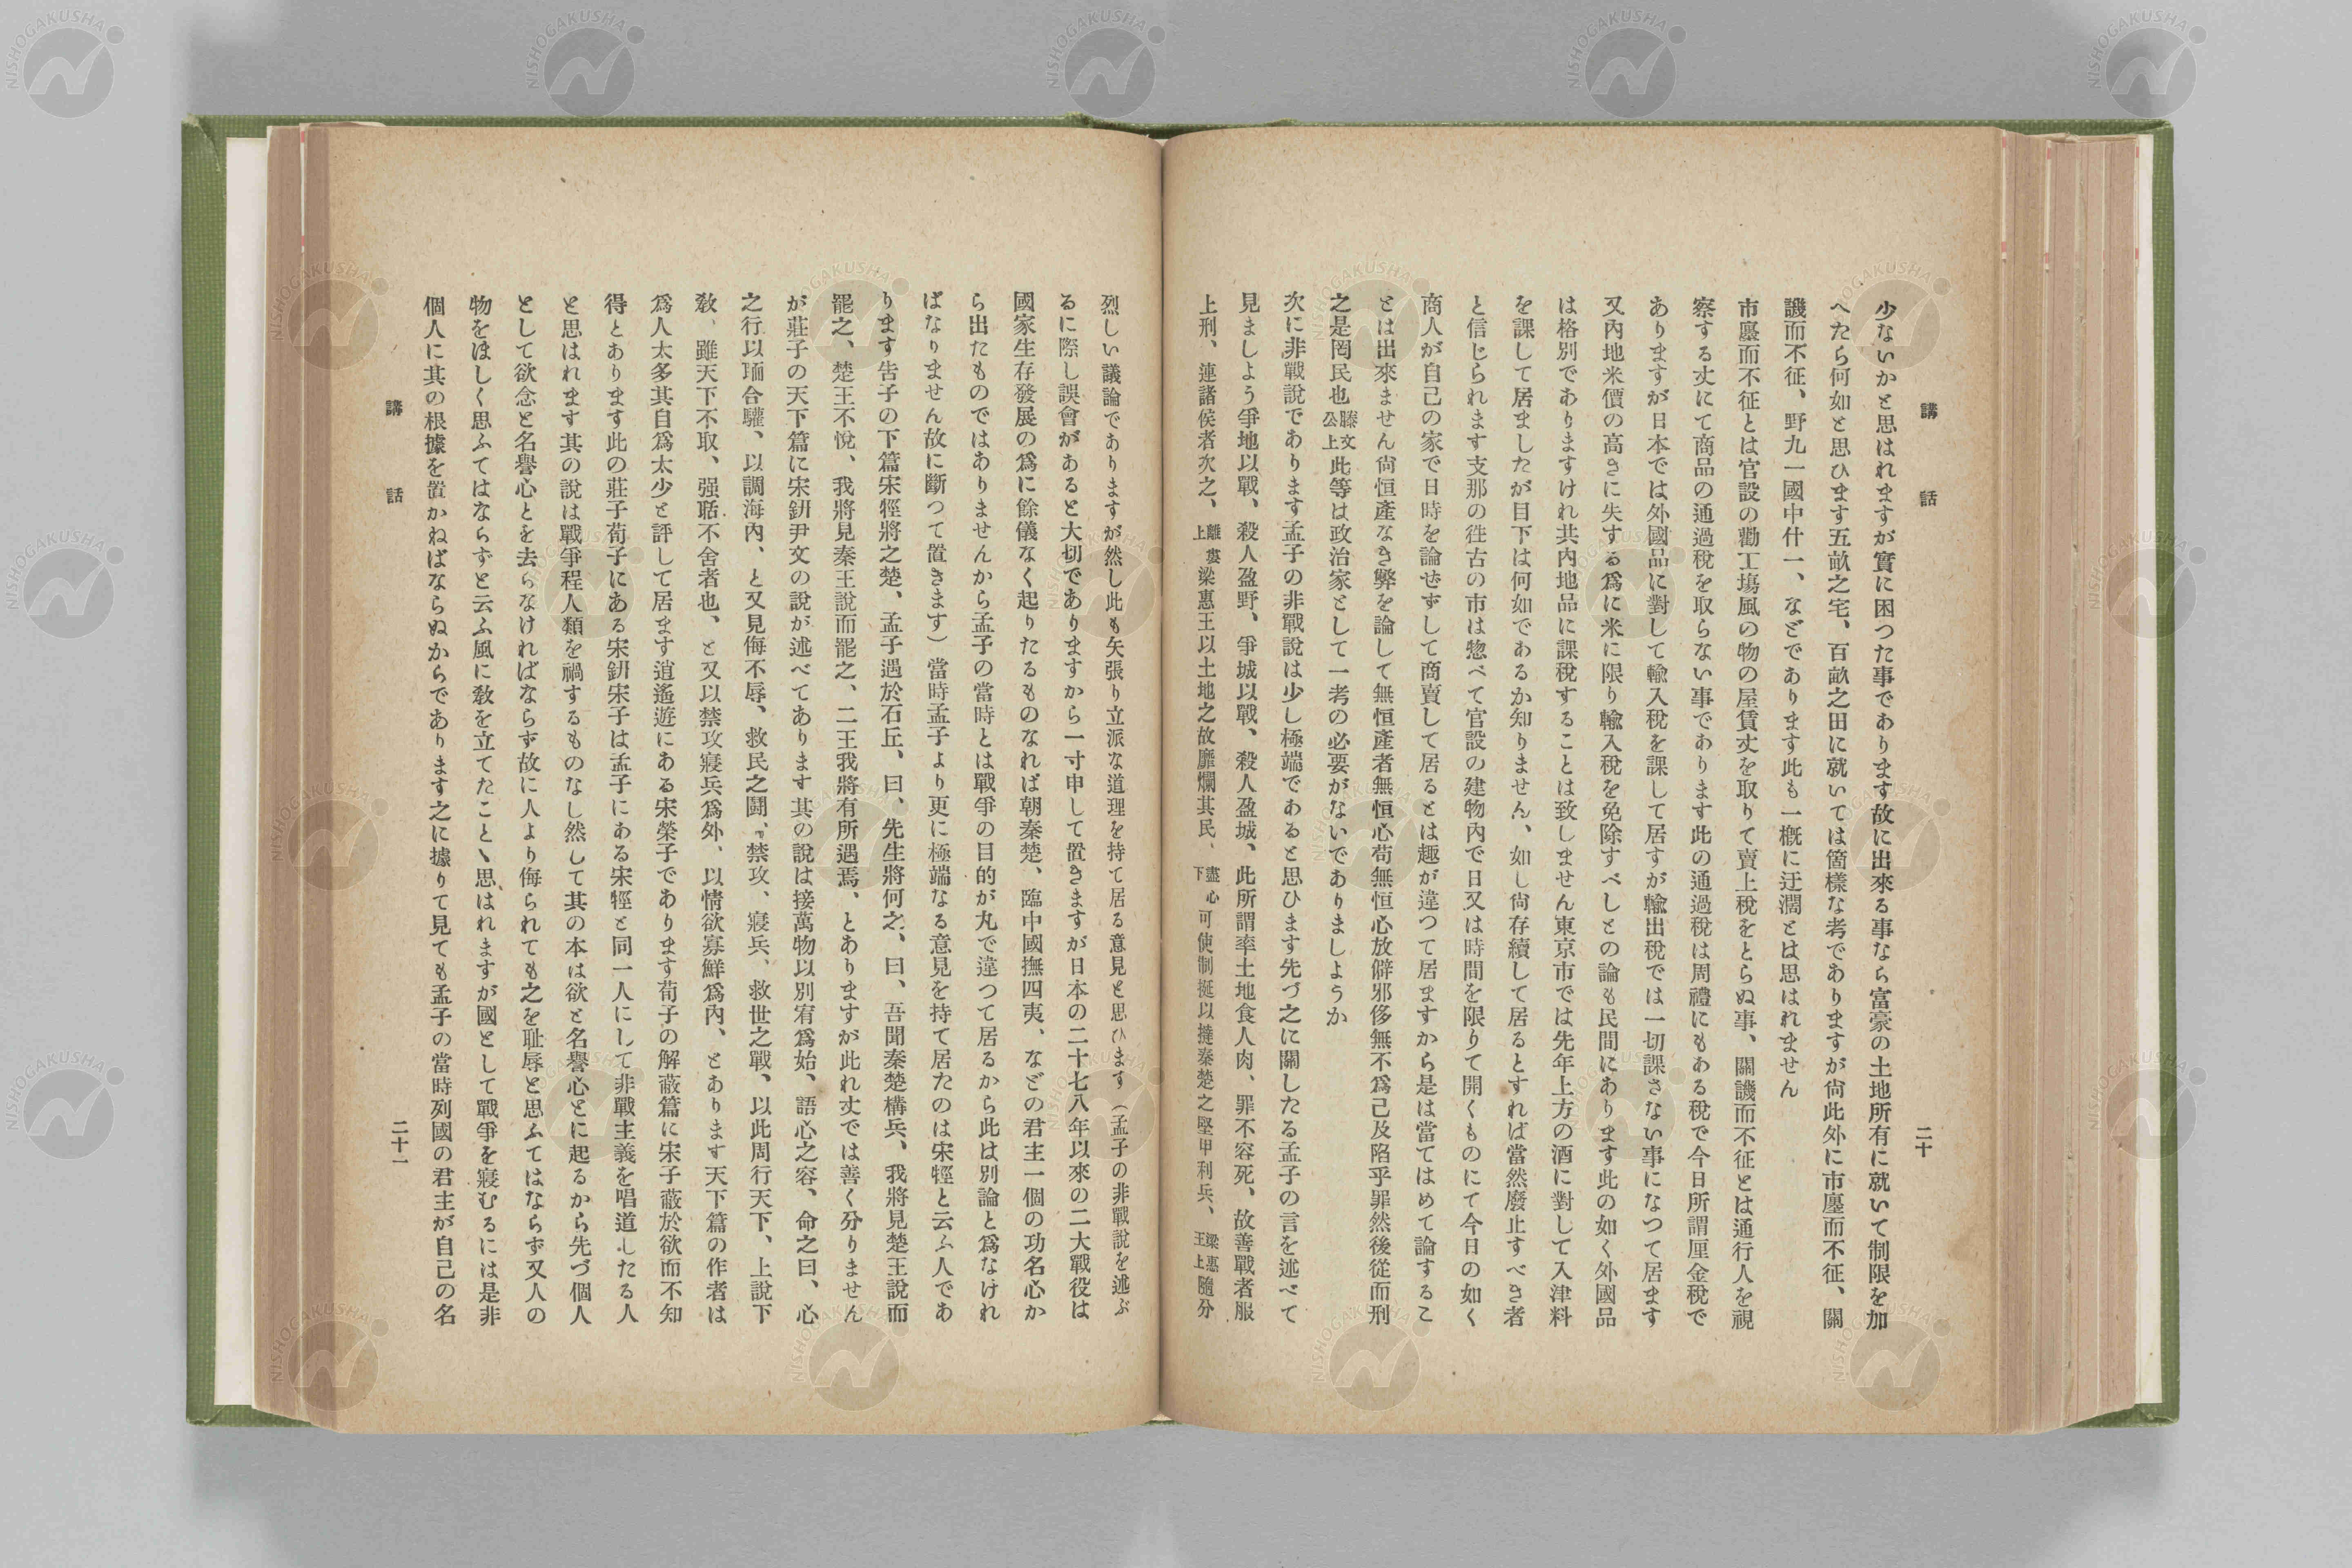 講話
二十
少ないかと思はれますが實に困つた事であります故に出來る事なら富豪の土地所有に就いて制限を加
へたら何如と思ひます五畝之宅、百畝之田に就いては箇樣な考でありますが尙此外に市廛而不征、關
譏而不征、野九一國中什一、などであります此も一槪に迂濶とは思はれません
市廛而不征とは官設の勸工塲風の物の屋賃丈を取りて賣上稅をとらぬ事、關譏而不征とは通行人を視
察する丈にて商品の通過稅を取らない事であります此の通過稅は周禮にもある稅で今日所謂厘金稅で
ありますが日本では外國品に對して輸入稅を課して居すが輸出稅では一切課さない事になつて居ます
又內地米價の高きに失する爲に米に限り輸入稅を免除すべしとの論も民間にあります此の如く外國品
は格別でありますけれ共內地品に課稅することは致しません東京市では先年上方の酒に對して入津料
を課して居ましたが目下は何如であるか知りません、如し尙存續して居るとすれば當然廢止すべき者
と信じられます支那の徃古の市は惣べて官設の建物內で日又は時間を限りて開くものにて今日の如く
商人が自己の家で日時を論せずして商賣して居るとは趣が違つて居ますから是は當てはめて論するこ
とは出來ません尙恒產なき弊を論して無恒產者無恒心苟無恒心放僻邪侈無不爲己及陷乎罪然後從而刑
之是罔民也滕文公上此等は政治家として一考の必要がないでありましようか
次に非戰說であります孟子の非戰說は少し極端であると思ひます先づ之に關したる孟子の言を述べて
見ましよう爭地以戰、殺人盈野、爭城以戰、殺人盈城、此所謂率土地食人肉、罪不容死、故善戰者服
上刑、連諸侯者次之、離婁上梁惠王以土地之故靡爛其民、盡心下可使制挺以撻秦楚之堅甲利兵、梁惠王上隨分
烈しい議論でありますが然し此も矢張り立派な道理を持て居る意見と思ひます（孟子の非戰說を述ぶ
るに際し誤會があると大切でありますから一寸申して置きますが日本の二十七八年以來の二大戰役は
國家生存發展の爲に餘儀なく起りたるものなれば朝秦楚、臨中國撫四夷、などの君主一個の功名心か
ら出たものではありませんから孟子の當時とは戰爭の目的が丸で違つて居るから此は別論と爲なけれ
ばなりません故に斷つて置きます）當時孟子より更に極端なる意見を持て居たのは宋牼と云ふ人であ
ります告子の下篇宋牼將之楚、孟子遇於石丘、曰、先生將何之、曰、吾聞秦楚構兵、我將見楚王說而
罷之、楚王不悅、我將見秦王說而罷之、二王我將有所遇焉、とありますが此れ丈では善く分りません
が莊子の天下篇に宋鈃尹文の說が述べてあります其の說は接萬物以別宥爲始、語心之容、命之曰、心
之行以聏合驩、以調海內、と又見侮不辱、救民之鬪、禁攻、寢兵、救世之戰、以此周行天下、上說下
敎、雖天下不取、强聒不舍者也、と又以禁攻寢兵爲外、以情欲寡鮮爲內、とあります天下篇の作者は
爲人太多其自爲太少と評して居ます逍遙遊にある宋榮子であります荀子の解蔽篇に宋子蔽於欲而不知
得とあります此の莊子荀子にある宋鈃宋子は孟子にある宋牼と同一人にして非戰主義を唱道したる人
と思はれます其の說は戰爭程人類を禍するものなし然して其の本は欲と名譽心とに起るから先づ個人
として欲念と名譽心とを去らなければならず故に人より侮られても之を耻辱と思ふてはならず又人の
物をほしく思ふてはならずと云ふ風に敎を立てたこと丶思はれますが國として戰爭を寢むるには是非
個人に其の根據を置かねばならぬからであります之に據りて見ても孟子の當時列國の君主が自己の名
講話
二十一